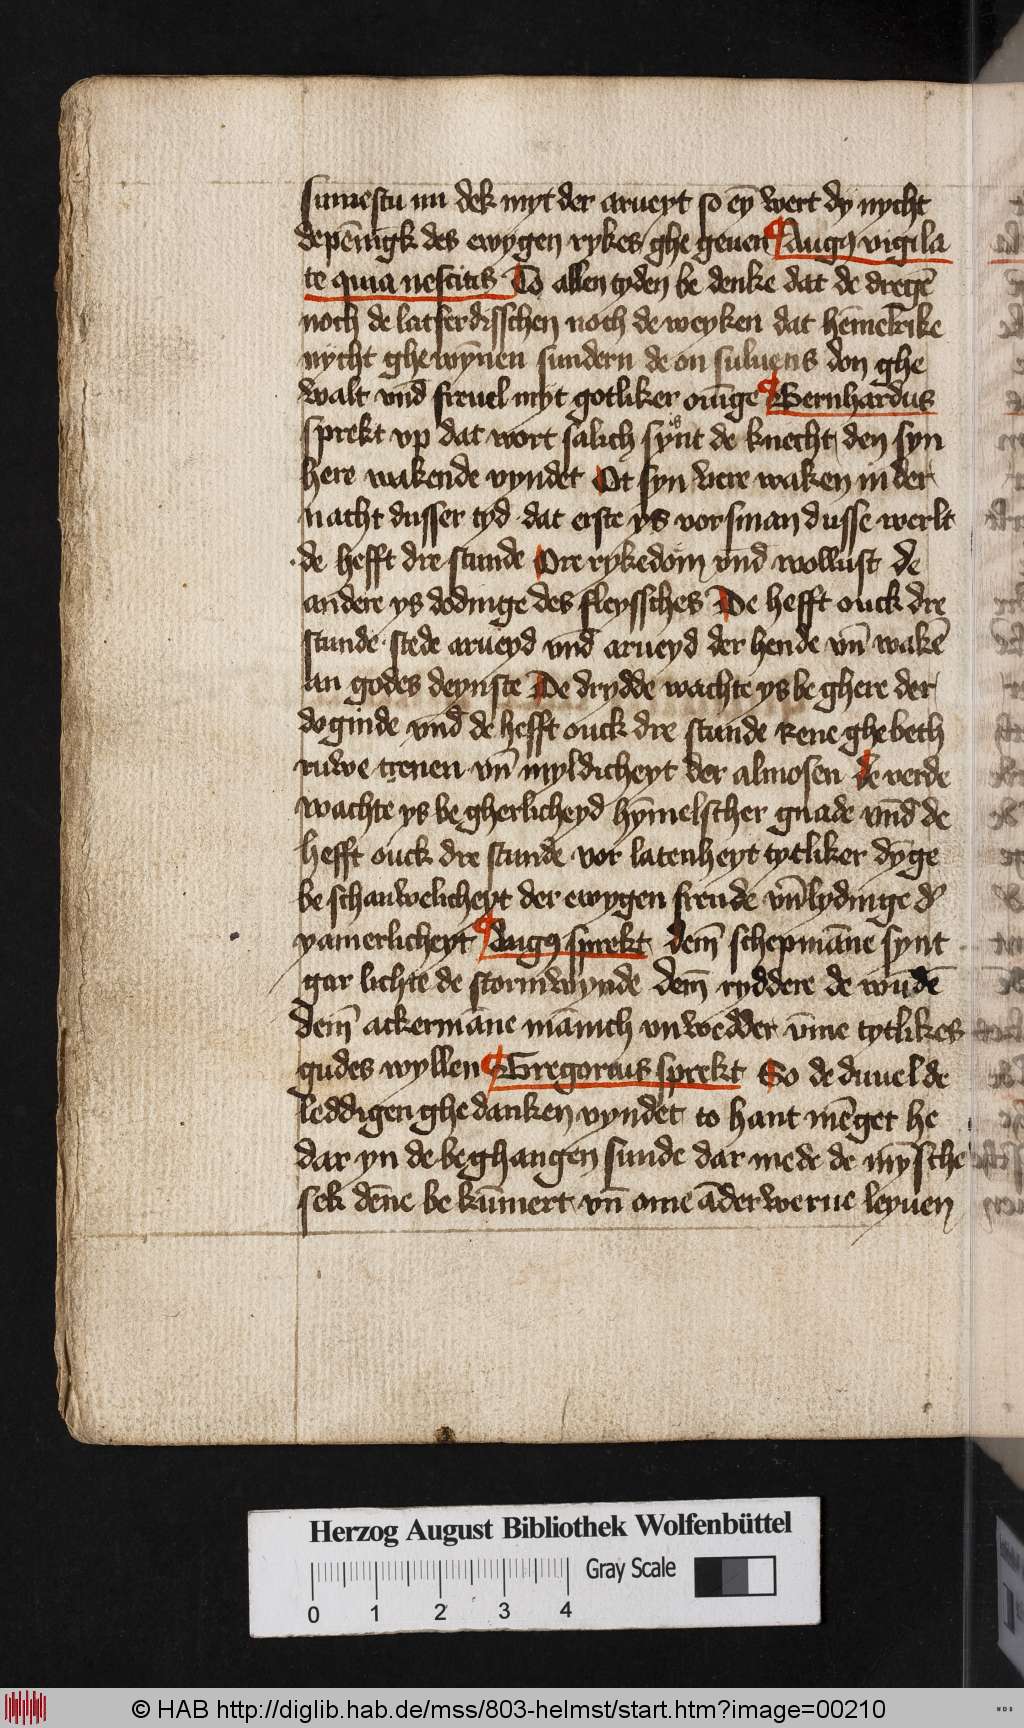 sumestu nu dek myt der arueyt so ey̅ wert dy nycht
de pe̅nigk des ewygen rykes ghe geuen ¶ Augꝰ vigila
te quia nescitis To allen tyden be denke dat de drege̅
noch de latferdisschen noch de weyken dat he̅melrike
nycht ghe wy̅nen sundern de on suluens don ghe
walt vn̅d freuel myt gotliker ou̅ige ¶ Bernhardus
sprekt vp dat wort salich synt de knecht den syn
here wakende vyndet Ot syn vere waken in der
nacht dusser tyd dat erste ys vorsman dusse werlt
de hefft dre stunde Ore rykedom vnd wollust de
andere ys dodinge des fleyssches De hefft ouck dre
stunde stede arueyd vnd arueyd der hende vn̅ wake̅
an godes deynste De drydde wachte ys be ghere der
doginde vnd de hefft ouck dre stunde Rene ghe beth
ruwe trenen vn̅ myldicheyt der almosen de verde
wachte ys be gherlicheyd hy̅melscher gnade vn̅d de
hefft ouck dre stunde vor latenheyt tytliker dy̅ge
be schauwelicheyt der ewygen freude vn̅ lydinge d'
yamerlicheyt ¶ Augꝰ sprekt dem̅ schepma̅ne synt
gar lichte de stormwynde dem̅ ryddere de wu̅de̅
dem̅ ackerma̅ne ma̅nich vnwedder v̅me tytlikes
gudes wyllen ¶ Gregorius sprekt So de duuel de
leddigen ghe danken vyndet to hant me̅get he
dar yn de be ghangen sunde dar mede de my̅sche
sek de̅ne be ku̅mert vn̅ ome a̅der werue leyuen
Herzog August Bibliothek Wolfenbüttel
Gray Scale
0 1 2 3 4
© HAB http://diglib.hab.de/mss/803-helmst/start.htm?image=00210